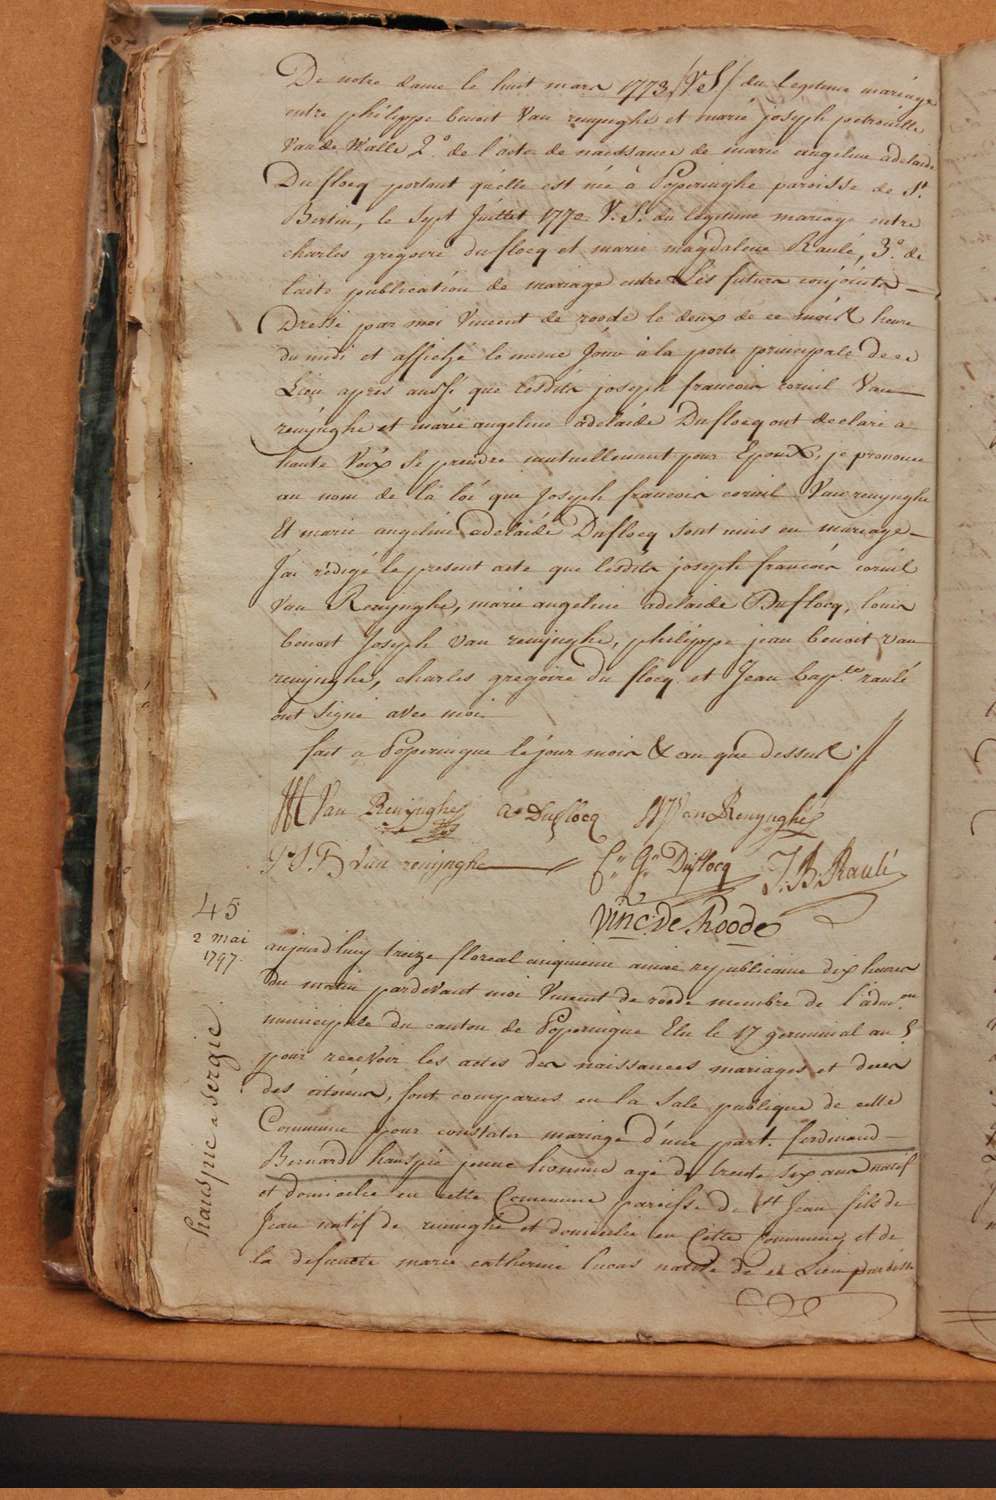 De notre dame le huit mars 1773 /V.S/ du legitime mariage
entre philippe benoit Van renynghe et marie joseph petronille
Van de Walle 2.° de l'acte de naissance de marie angeline adelaide
Duflocq portant qu'elle est née à Poperinghe paroisse de St.
Bertin, le sept Juillet 1772 V.S. du legitime mariage entre
charles gregoire duflocq et marie magdaleine Raulé, 3.° de
l'acte publication de mariage entre Les futurs conjoints
Dressé par moi Vincent de roode le deux de ce mois heure
du midi et affiché le meme Jour à la porte principale de ce
Lieu après aussi que lesdits joseph francois corneil Van
renynghe et marie angeline adelaide Duflocq ont declaré a
haute Voix se prendre mutuellement pour Epoux, je prononce
au nom de la loi que Joseph francois corneil Van renynghe
Et marie angeline adelaide Duflocq sont unis en mariage
J'ai rédigé le present acte que lesdits joseph francois corneil
Van Renynghe, marie angeline adelaide Duflocq, louis
benoit Joseph van renynghe, philippe jean benoit van
renynghe, charles gregoire du flocq et Jean bap.te raulé
ont signé avec moi
fait a Poperingue le jour mois & an que dessus
Van Renynghe a Duflocq Van Renynghe
van renynghe C. G. Duflocq J. B. Raulé
Vinc: De Roode
45
2 mai
1797.
hauspie a sergie
aujourd'huy treize floreal cinquieme année republicaine dix heures
du matin pardevant moi Vincent de roode membre de l'adm.on
municipale du canton de Poperingue Elu le 17 germinal an 5.
pour recevoir les actes des naissances mariages et deces
des citoiens, sont comparus en la Sale publique de cette
Commune pour constater mariage d'une part. ferdinand
Bernard hauspie jeune homme agé de trente six ans natif
et domicilié en cette Commune paroisse de St Jean fils de
Jean natif de reninghe et domicilié en Cette Commune, et de
la defuncte marie catherine lucas native de ce Lieu